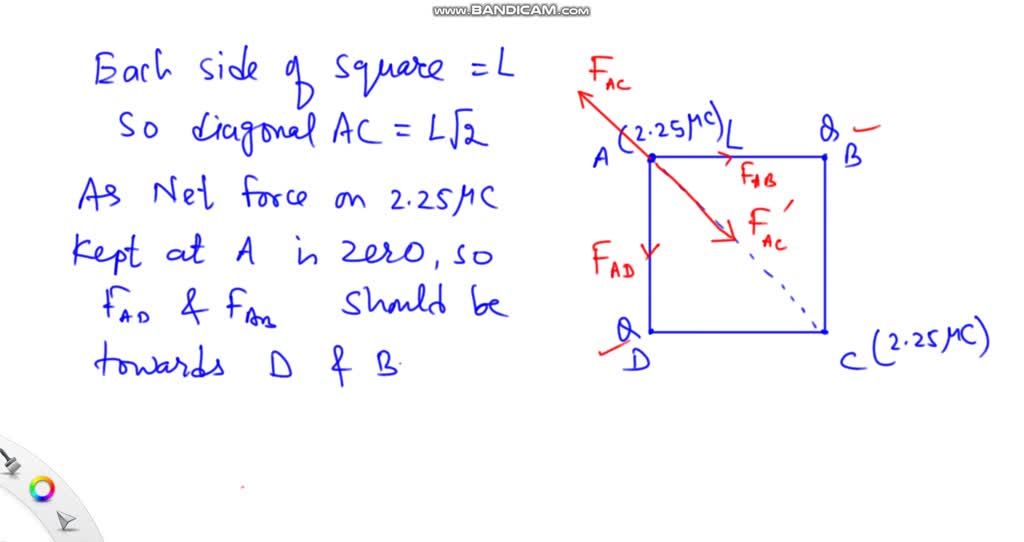 www.BANDICAM.com
Each side of square = L
So diagonal AC = L√2
As Net force on 2.25 μC
Kept at A is zero, so
F_AD & F_AB should be
towards D & B
F_AC
(2.25 μC) L
Q
A
B
F_AB
F_AC'
F_AD
Q
D
C (2.25 μC)